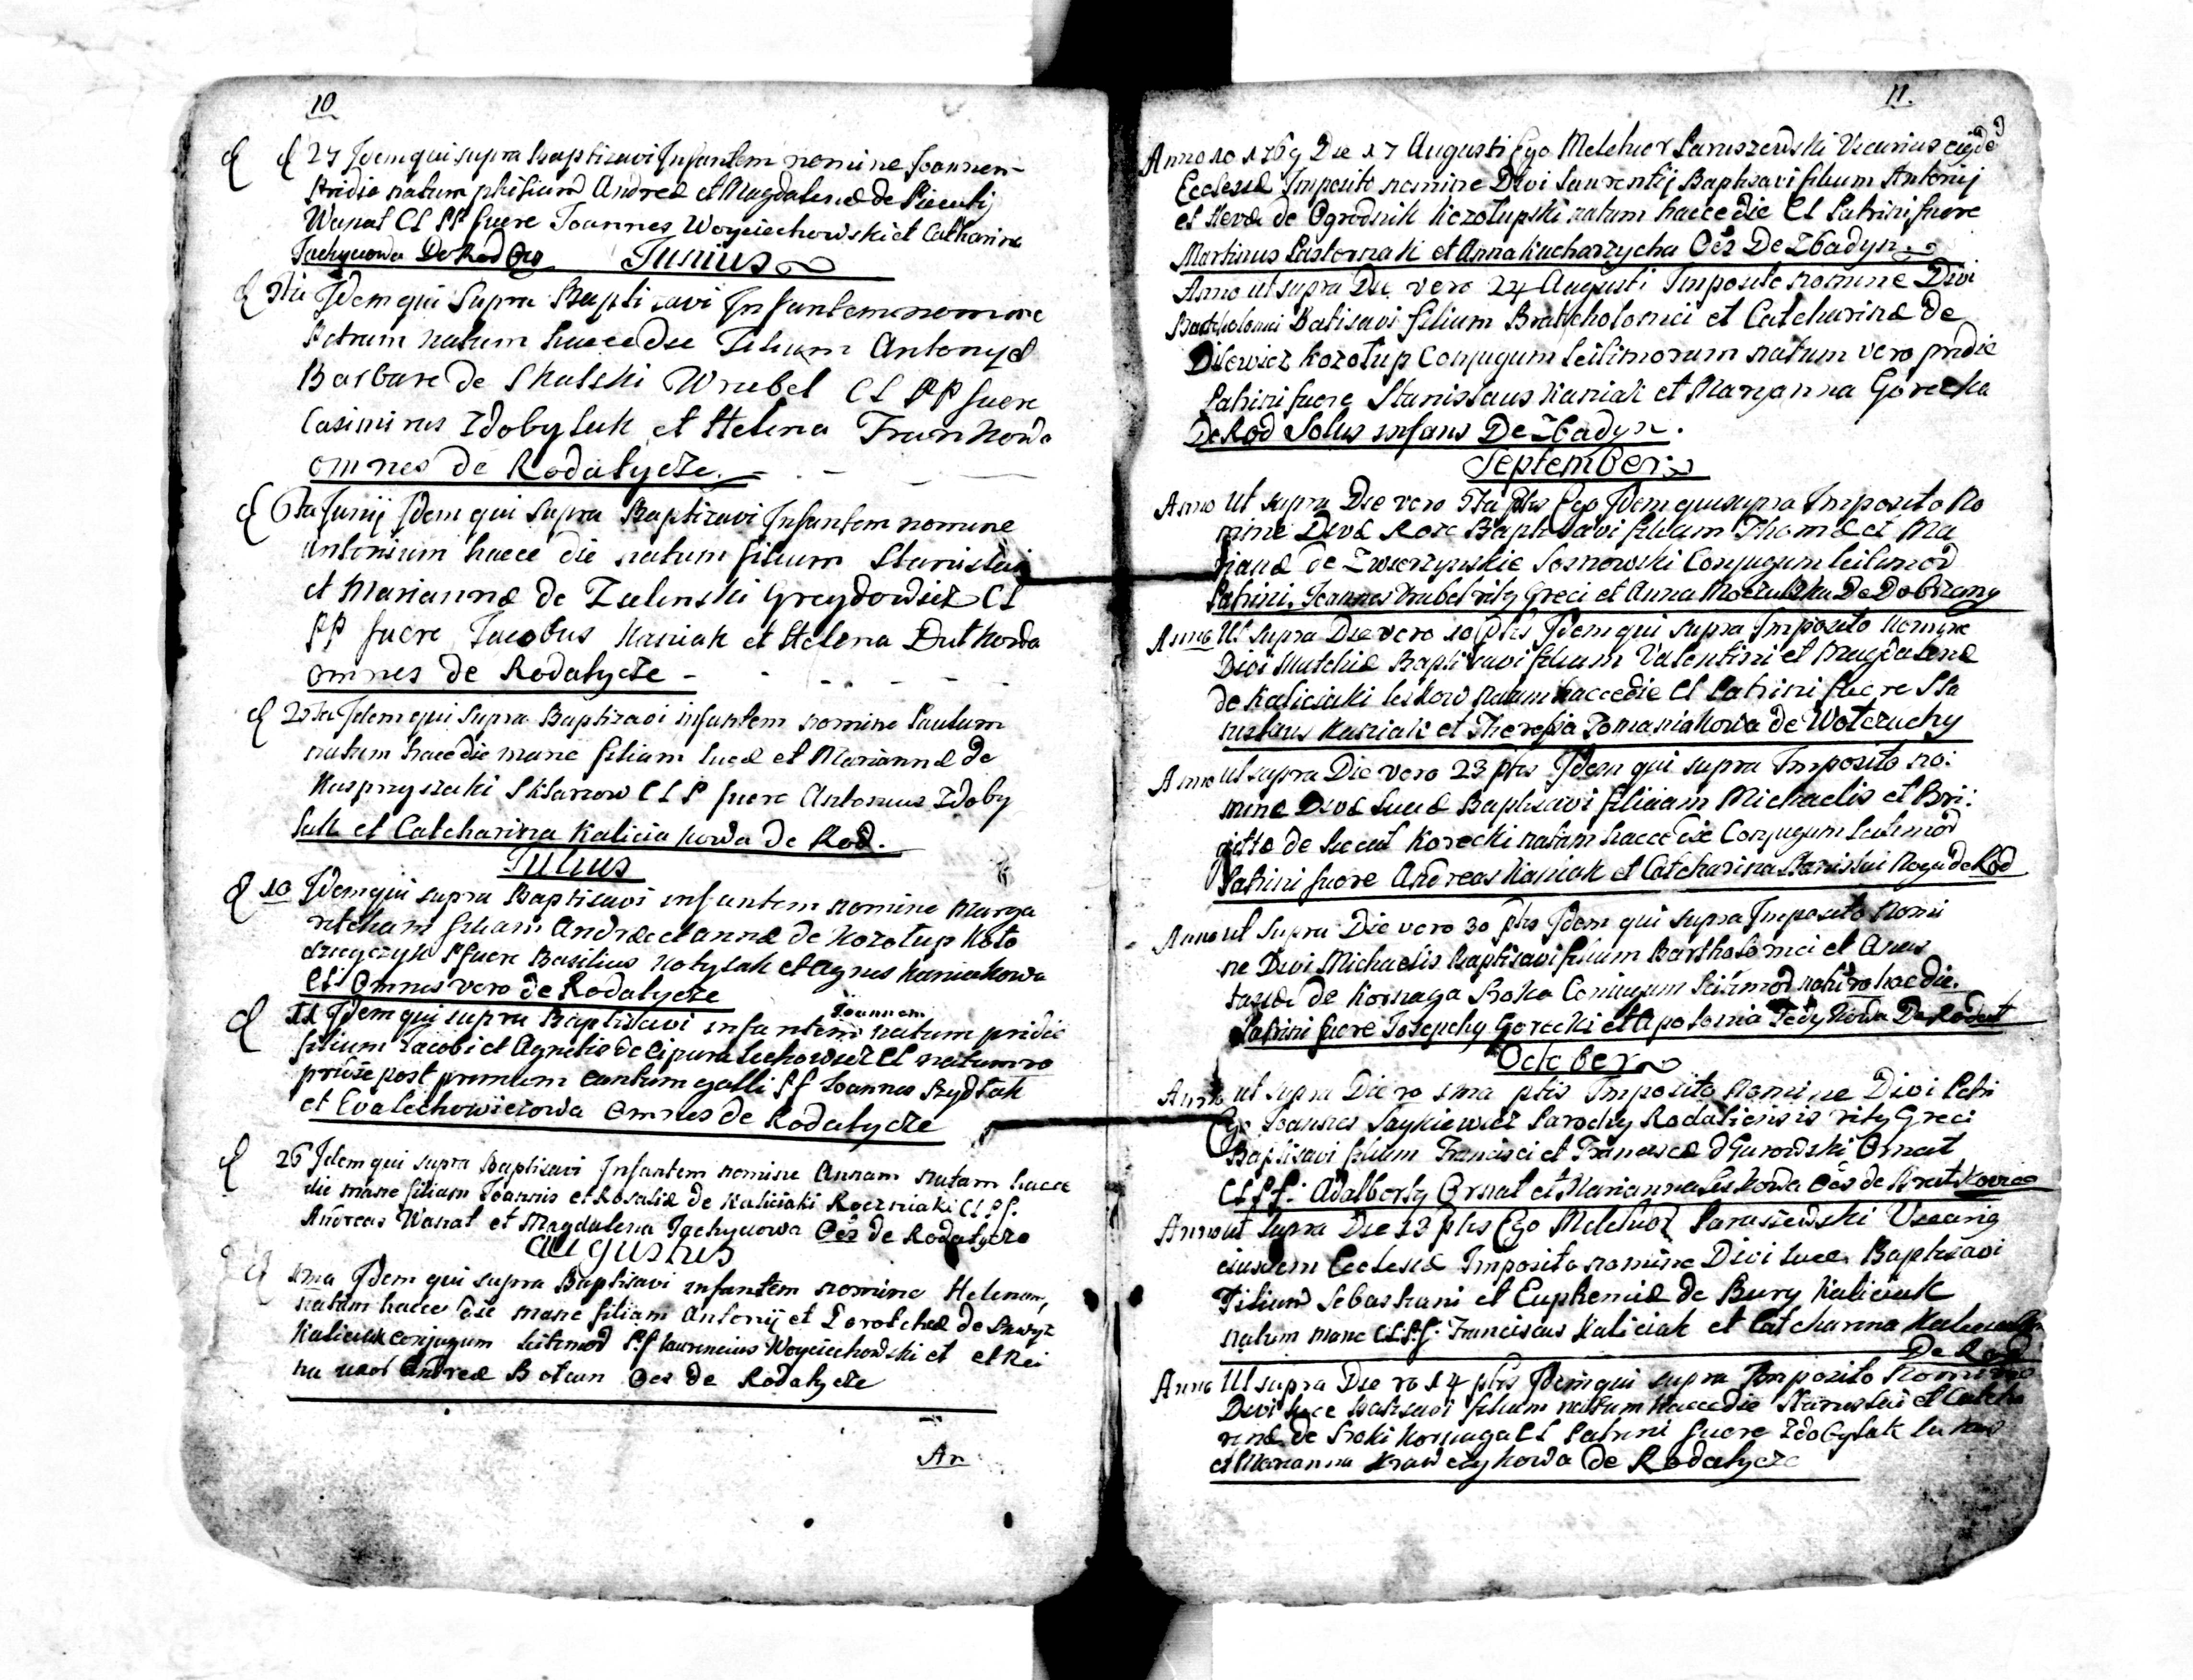 10
27 Idem qui supra Baptizavi Infantem nomine Joannem
Pridie natum filium Andreæ et Magdalenæ de
Wanat CL PP fuere Joannes Woyciechowski et Catharina
De Rod Oes
Junius
Idem qui Supra Baptizavi Infantem nomine
Petrum natum haece die Filium Antonij et
Barbare de Skulski Wrubel CL PP fuere
Casimirus Zdobylak et Helena Frankowa
omnes de Rodatycze
6ta Junij Idem qui Supra Baptizavi Infantem nomine
Antonium haece die natum filium Stanislai
et Mariannæ de Zielenski Greydowicz CL
PP fuere Jacobus Kaniak et Helena Dutkowa
omnes de Rodatycze
Idem qui supra Baptizavi infantem nomine Paulum
natum haece die mane filium Lucæ et Mariannæ de
Kasprzyszaki Sklarzow CLP fuere Antonius Zdoby
lak et Catcharina Kaliciakowa de Rod.
Julius
10 Idem qui supra Baptisavi infantem nomine Marga
retcham filiam Andreæ et Annæ de Kozołup Koło
dzieyczyk PP fuere Basilius Kotylak et Agnes Kaniakowa
CL Omnes vero de Rodatycze
Joannem
11 Idem qui supra Baptisavi infantem natum pridie
filium Jacobi et Agnetis de Cipura Lechowicz CL natum vo
pridie post primum cantum galli PP Joannes Rydlak
et Eva Lechowiczowa Omnes de Rodatycze
26 Idem qui supra Baptisavi Infantem nomine Annam natam haece
die mane filiam Joannis et Rosaliæ de Kaliciaki Roczniaki CL Pf.
Andreas Wanat et Magdalena Jachymowa Oes de Rodatycze
Augustus
1ma Idem qui supra Baptisavi infantem nomine Helenam,
natam haece die mane filiam Antonij et Dorotcheæ de
Kaliciak conjugum leitimod Pf Laurencius Woyciechowski et
na uxor Andreæ Botcun Oes de Rodatycze
An
11.
Anno 1769 Die 17 Augusti Ego Melchior Paruszewski Vicarius eiqde
Ecclesiæ Imposito nomine Divi Laurentij Baptisavi filium Antonij
et Hevæ de Ogrodnik Kozołupski natum haece die CL Patrini fuere
Martinus Pastornak et Anna Kucharzycha Oes De Zbadyn.
Anno ut supra Die vero 24 Augusti Imposito nomine Divi
Batisavi filium Bratcholomei et Catcharinæ de
Dilewicz Kozołup Conjugum leitimorum natum vero pridie
Patrini fuere Stanislaus Kaniak et Maryanna Górecka
De Rod Solus infans De Zbadyn.
September
Anno ut supra Die vero 5ta Ptis Ego Idem qui supra Imposito No
mine Divæ Rosæ Baptisavi filiam Thomæ et Ma
rianæ de Zwierzynskie Sosnowski Conjugum leitimod
Patrini Joannes Wrubel rity Greci et Anna De Dobrzany
Anno Ut supra Die vero 10 Ptis Idem qui supra Imposito Nomine
Divi Matchiæ Baptisavi filium Valentini et Magdalenæ
de Kaliciaki Leskow natum haece die CL Patrini fuere Sta
nislaus Kaniak et Theresia Tomaniakowa de Wołczuchy
Anno ut supra Die vero 23 ptis Idem qui supra Imposito no:
mine Divæ Baptisavi filiam Michaelis et Bri:
gittæ de Korecki natam haece die Conjugum leitimod
Patrini fuere Andreas Kaniak et Catcharina de Rod
Anno ut Supra Die vero 30 ptis Idem qui supra Imposito Nomi
ne Divi Michaelis Baptisavi filium Bartholomei et Anas
tasiæ de Kornaga Sroka Coniugum leitimod natum vo hac die.
Patrini fuere Josephy Gorecki et Apolonia Fedykowa De Rodat
October
Anno ut supra Die vo 1ma ptis Imposito Nomine Divi Petri
Ego Joannes Saykiewicz Parochy Rodaticensis rity Greci
Baptisavi filium Francisci et Franciscæ Ornat
CL Pf: Adalberty Ornat et Marianna Leskowa Oes de Bratkowice
Anno ut Supra Die 13 ptis Ego Melchior Paruszewski Vicariq
eiusdem Ecclesiæ Imposito nomine Divi Lucæ Baptisavi
Filium Sebastiani et Euphemiæ de Bury Kaliciak
natum mane CL Pf. Franciscus Kaliciak et Catcharina
De Rod
Anno Ut supra Die vo 14 ptis Idem qui supra Imposito Nomine
Divi Lucæ Batisavi filium natum haece die Stanislai et Catcha
rinæ de Sroki Kornaga CL Patrini fuere Zdobylak Lucas
et Marianna Krawczykowa de Rodatycze